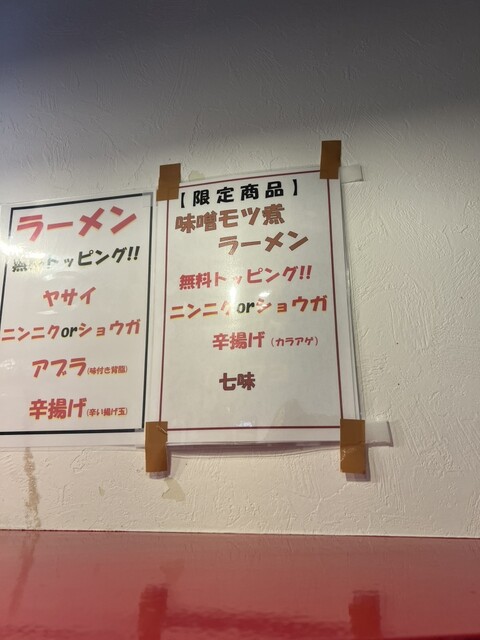 ラーメン
無料トッピング!!
ヤサイ
ニンニクorショウガ
アブラ(味付き背脂)
辛揚げ(辛い揚げ玉)
【限定商品】
味噌モツ煮
ラーメン
無料トッピング!!
ニンニクorショウガ
辛揚げ(カラアゲ)
七味